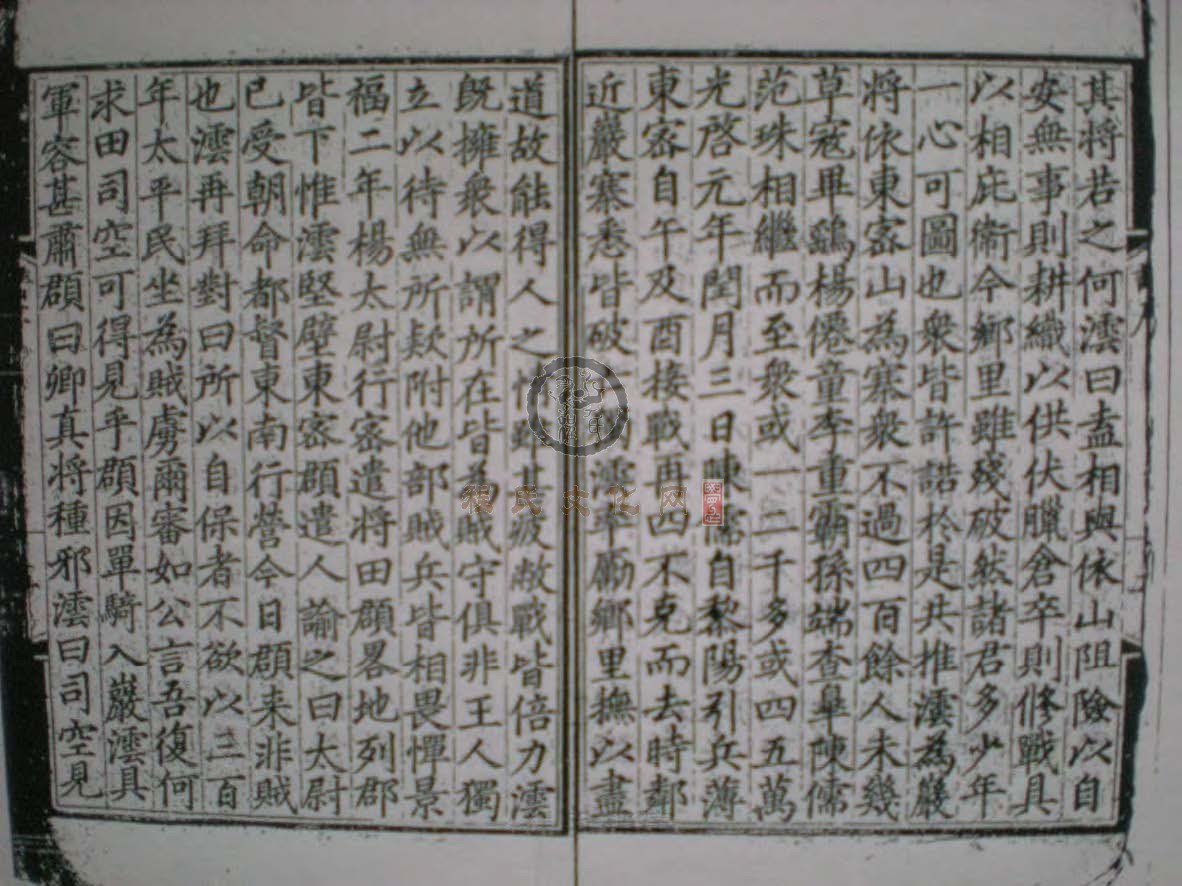 其將若之何澐曰盍相與依山阻險以自
安無事則耕織以供伏臘倉卒則修戰具
以相庇衛今鄉里雖殘破然諸君多少年
一心可圖也衆皆許諾於是共推澐為巖
將依東宻山為寨衆不過四百餘人未幾
草寇畢鷂楊僊童李重霸孫端查臯陳儒
范珠相繼而至衆或一二千多或四五萬
光啓元年閏月三日陳儒自黎陽引兵薄
東宻自午及酉接戰再四不克而去時鄰
近巖寨悉皆破澐率勵鄉里撫以盡
道故能得人之情雖甚疲敝戰皆倍力澐
既擁衆以謂所在皆為賊守俱非王人獨
立以待無所欵附他部賊兵皆相畏憚景
福二年楊太尉行宻遣將田頵畧地列郡
皆下惟澐堅壁東宻頵遣人諭之曰太尉
已受朝命都督東南行營今日頵来非賊
也澐再拜對曰所以自保者不欲以三百
年太平民坐為賊虜爾審如公言吾復何
求田司空可得見乎頵因單騎入巖澐具
軍容甚肅頵曰卿真將種邪澐曰司空見
程氏文化网